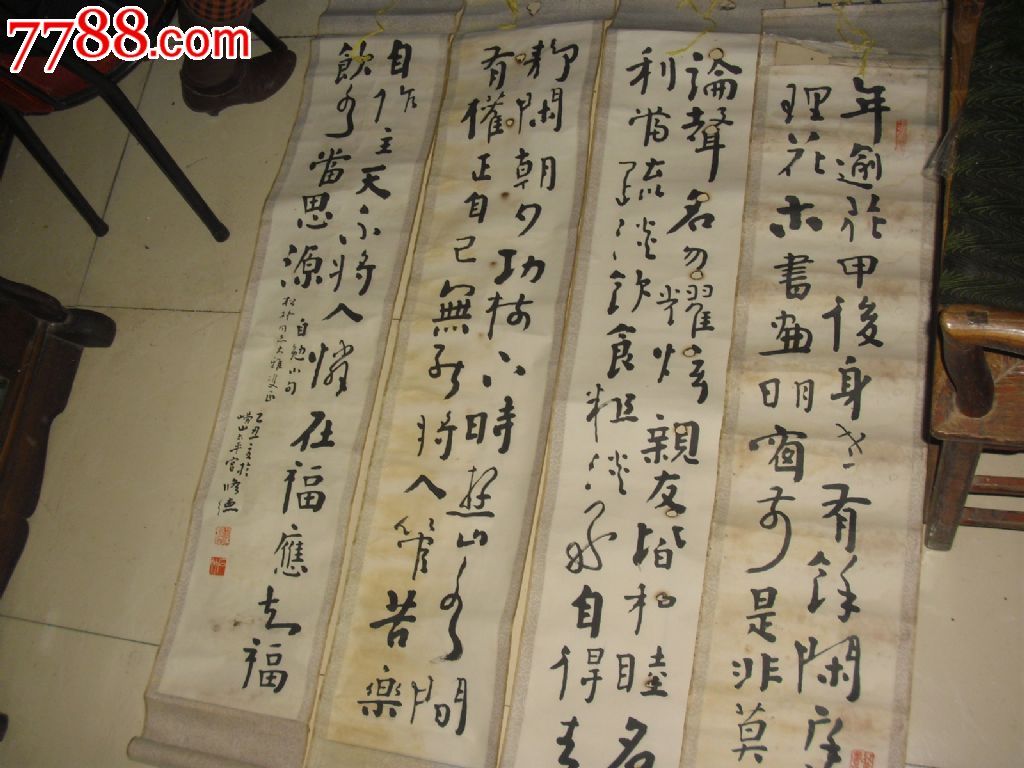 7788.com
年逾花甲後身有餘閑庭
理花木書畫明窗前是非莫
論聲名勿耀炫親友皆和睦名
利當疏淡飲食粗淡自得
靜閑朝夕功時遊山水間
有權正自己無將人管苦樂
自作主天不將人憐在福應知福
飲水當思源
自勉小句
乙丑於
嶗山太平宮